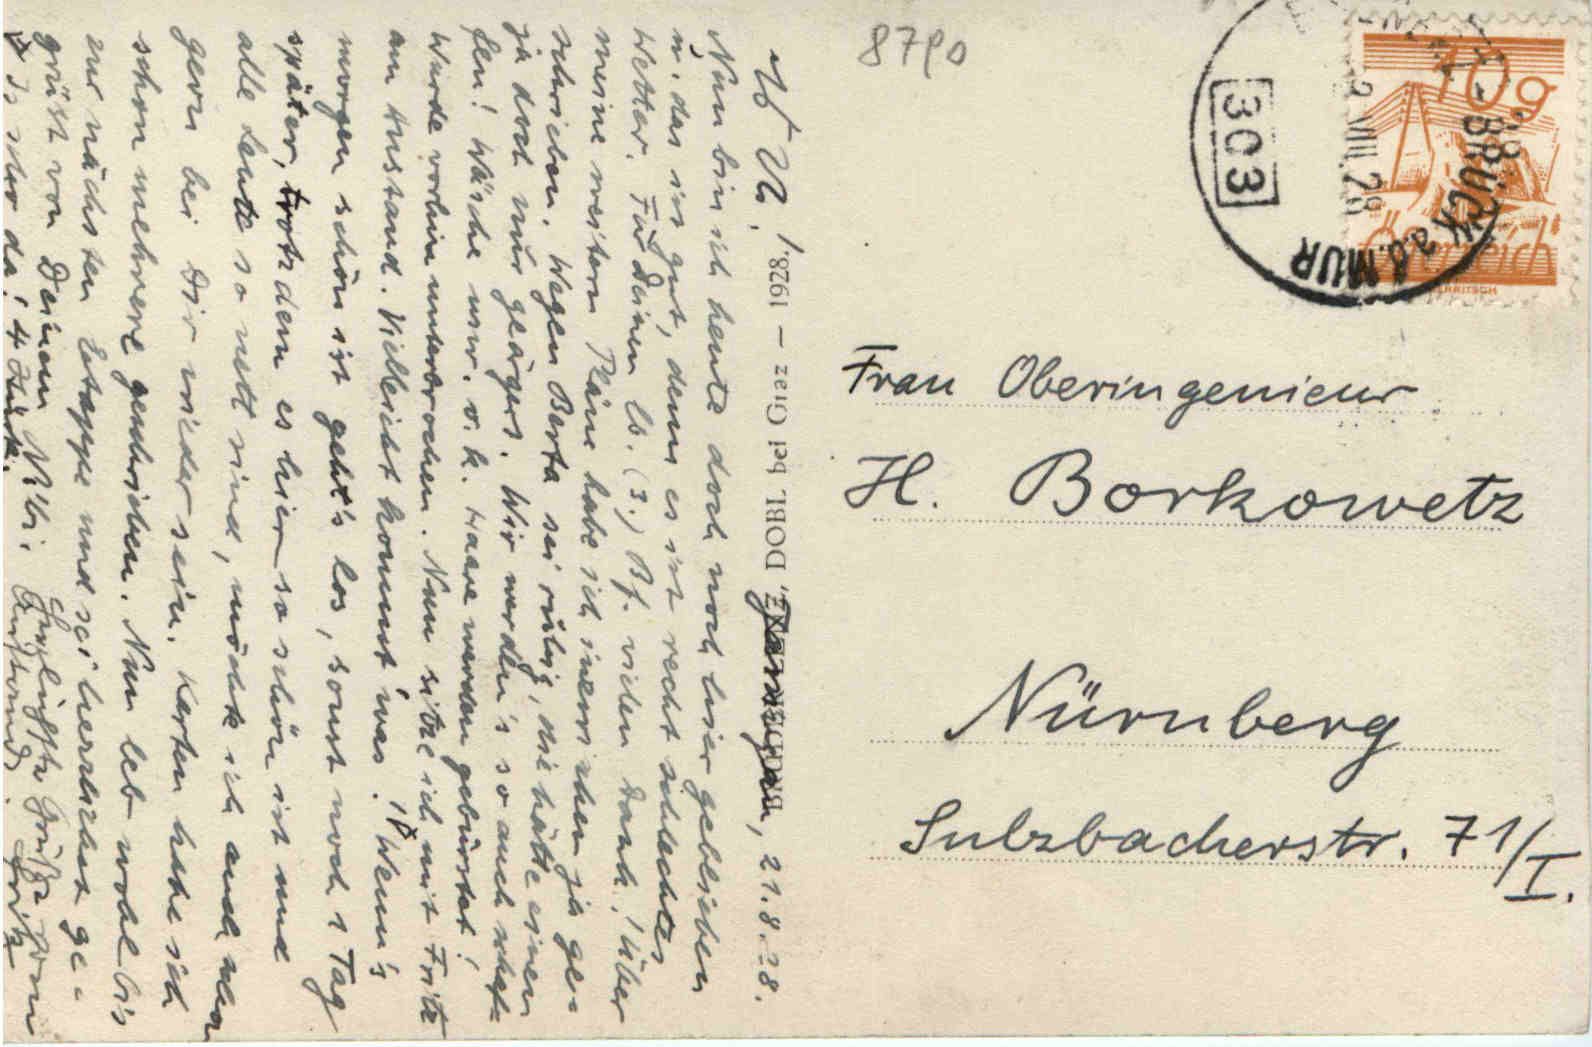 8790
10g
Österreich
BRUCK a.d. MUR
2 VIII 28
303
Frau Oberingenieur
H. Borkowetz
Nürnberg
Sulzbacherstr. 71/I.
BRÜDER LENZ, DOBL bei Graz — 1928.
21.8.28.
Nun bin ich heute doch noch hier geblieben
u. das ist gut, denn es ist recht schlechtes
Wetter. Für Deinen lb. (3.) Bf. vielen Dank! Über
meine weitern Pläne habe ich inzwischen ja ge-
schrieben. Wegen Berta sei ruhig, sie hätte einen
ja doch nur geärgert. Wir werden's so auch schaf-
fen! Wäsche usw. v. k. Haare werden gebürstet!
Wurde vorhin unterbrochen. Nun sitze ich mit Fritz
am Anstand. Vielleicht kommt was! Wenn's
morgen schön ist geht's los, sonst noch 1 Tag
später, trotzdem es hier so schön ist und
alle Leute so nett sind, möchte ich auch schon
gern bei Dir wieder sein. Karten habe ich
schon mehrere geschrieben. Nun leb wohl bis
zur nächsten Etappe und sei herzlichst ge-
grüßt von Deinem Wibi.
Grüße vom
Anstand. Fritz
da! 4 Stück.